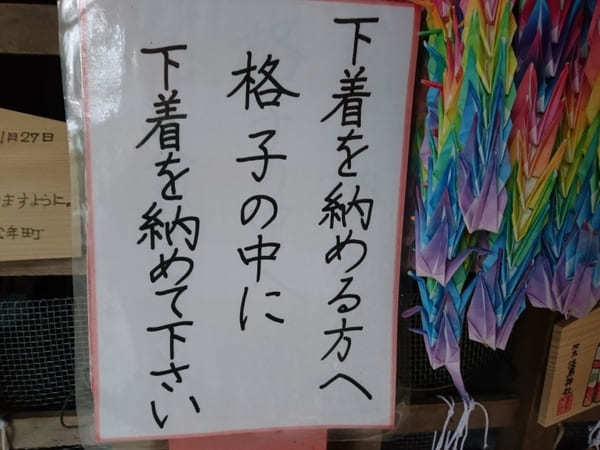 下着を納める方へ
格子の中に
下着を納めて下さい
月27日
ますように。
年町
神社